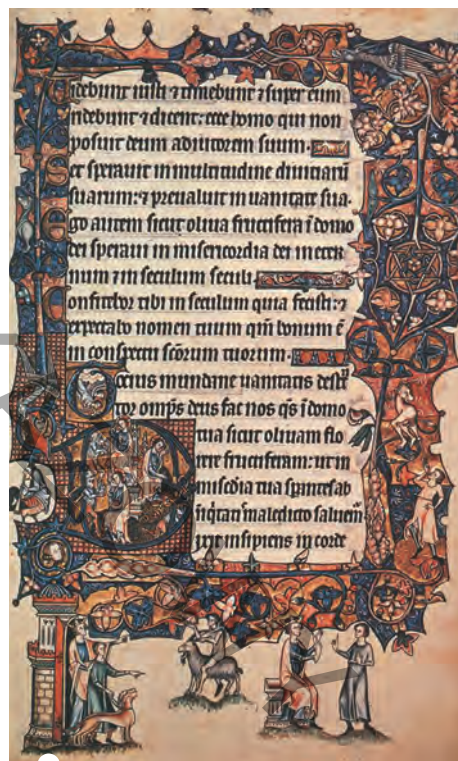 idebunt iusti ⁊ timebunt ⁊ super eum
ridebunt ⁊ dicent: ecce homo qui non
posuit deum adiutorem suum.
et sperauit in multitudine diuitiarū
suarum: ⁊ preualuit in uanitate sua.
Ego autem sicut oliua fructifera ī domo
dei speraui in misericordia dei in eter
num ⁊ in seculum seculi.
Confitebor tibi in seculum quia fecisti: ⁊
expectabo nomen tuum qm̄ bonum ē
in conspectu scōrum tuorum.
ocius mundane uanitatis destr
tor omp̄s deus fac nos q̄s ī domo
tua sicut oliuam flo
rere fructiferam: ut in
mis̄cdia tua sp̄antes ab
maledicto saluem
ixit insipiens in corde